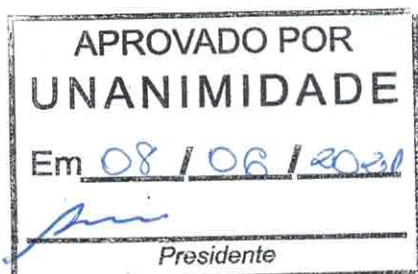 APROVADO POR
UNANIMIDADE
Em 08 / 06 / 2021
Presidente